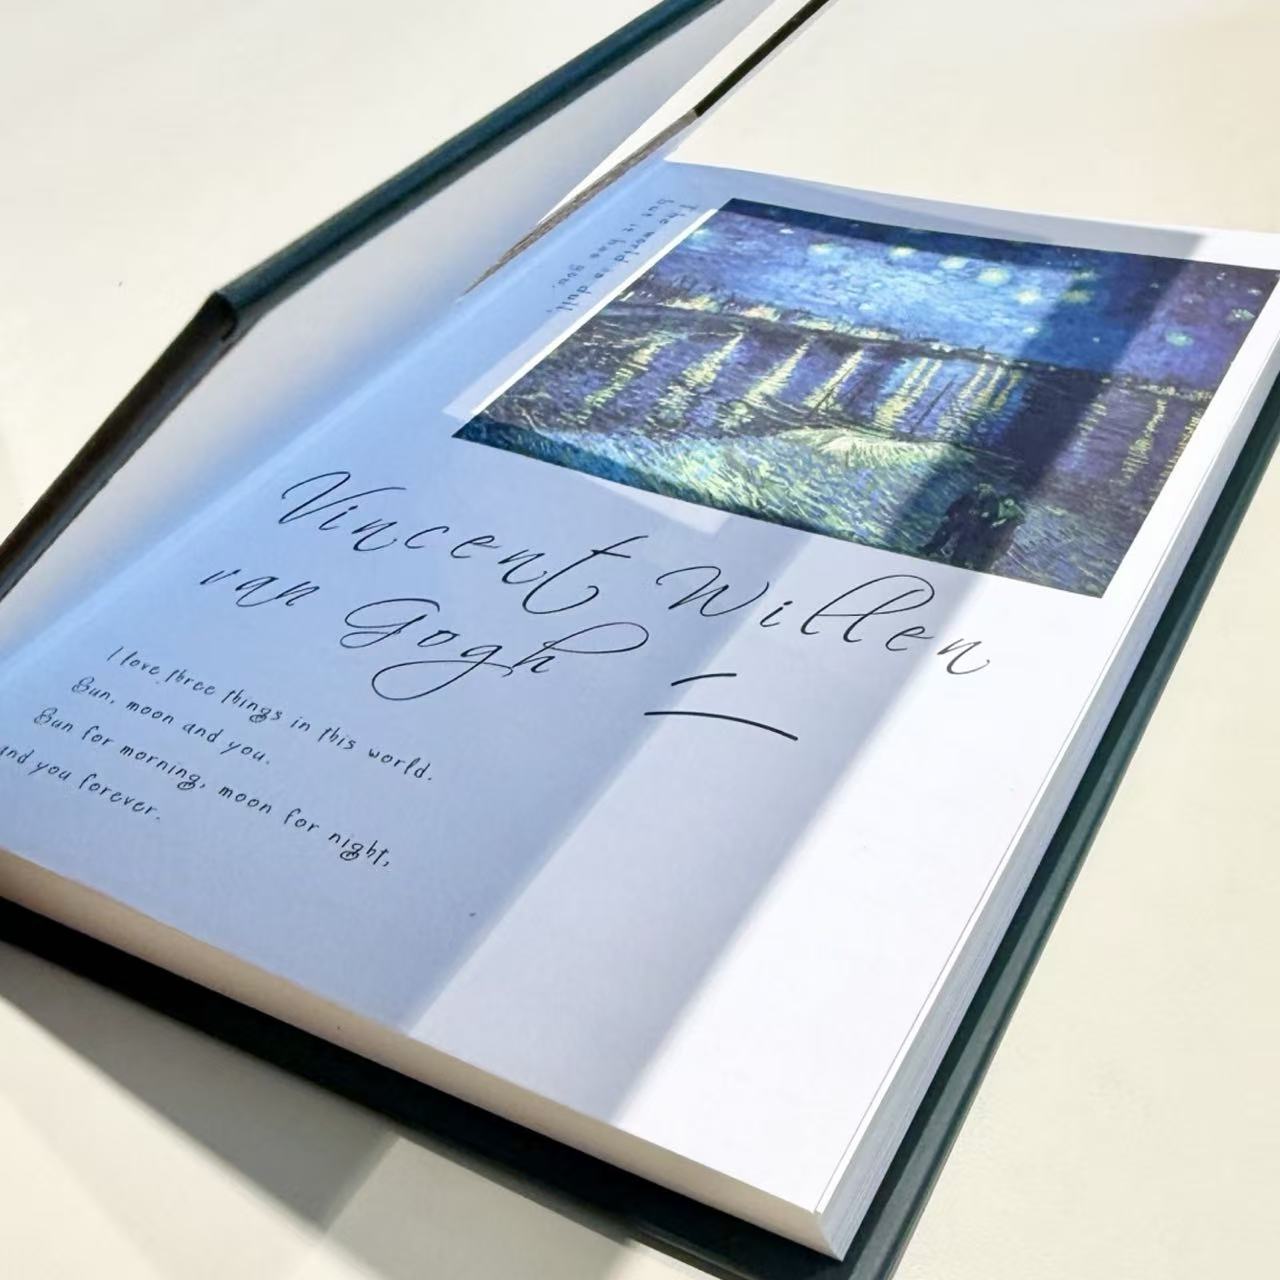 The world is dull,
but it has you.
Vincent Willen
van Gogh
I love three things in this world.
Sun, moon and you.
Sun for morning, moon for night,
and you forever.